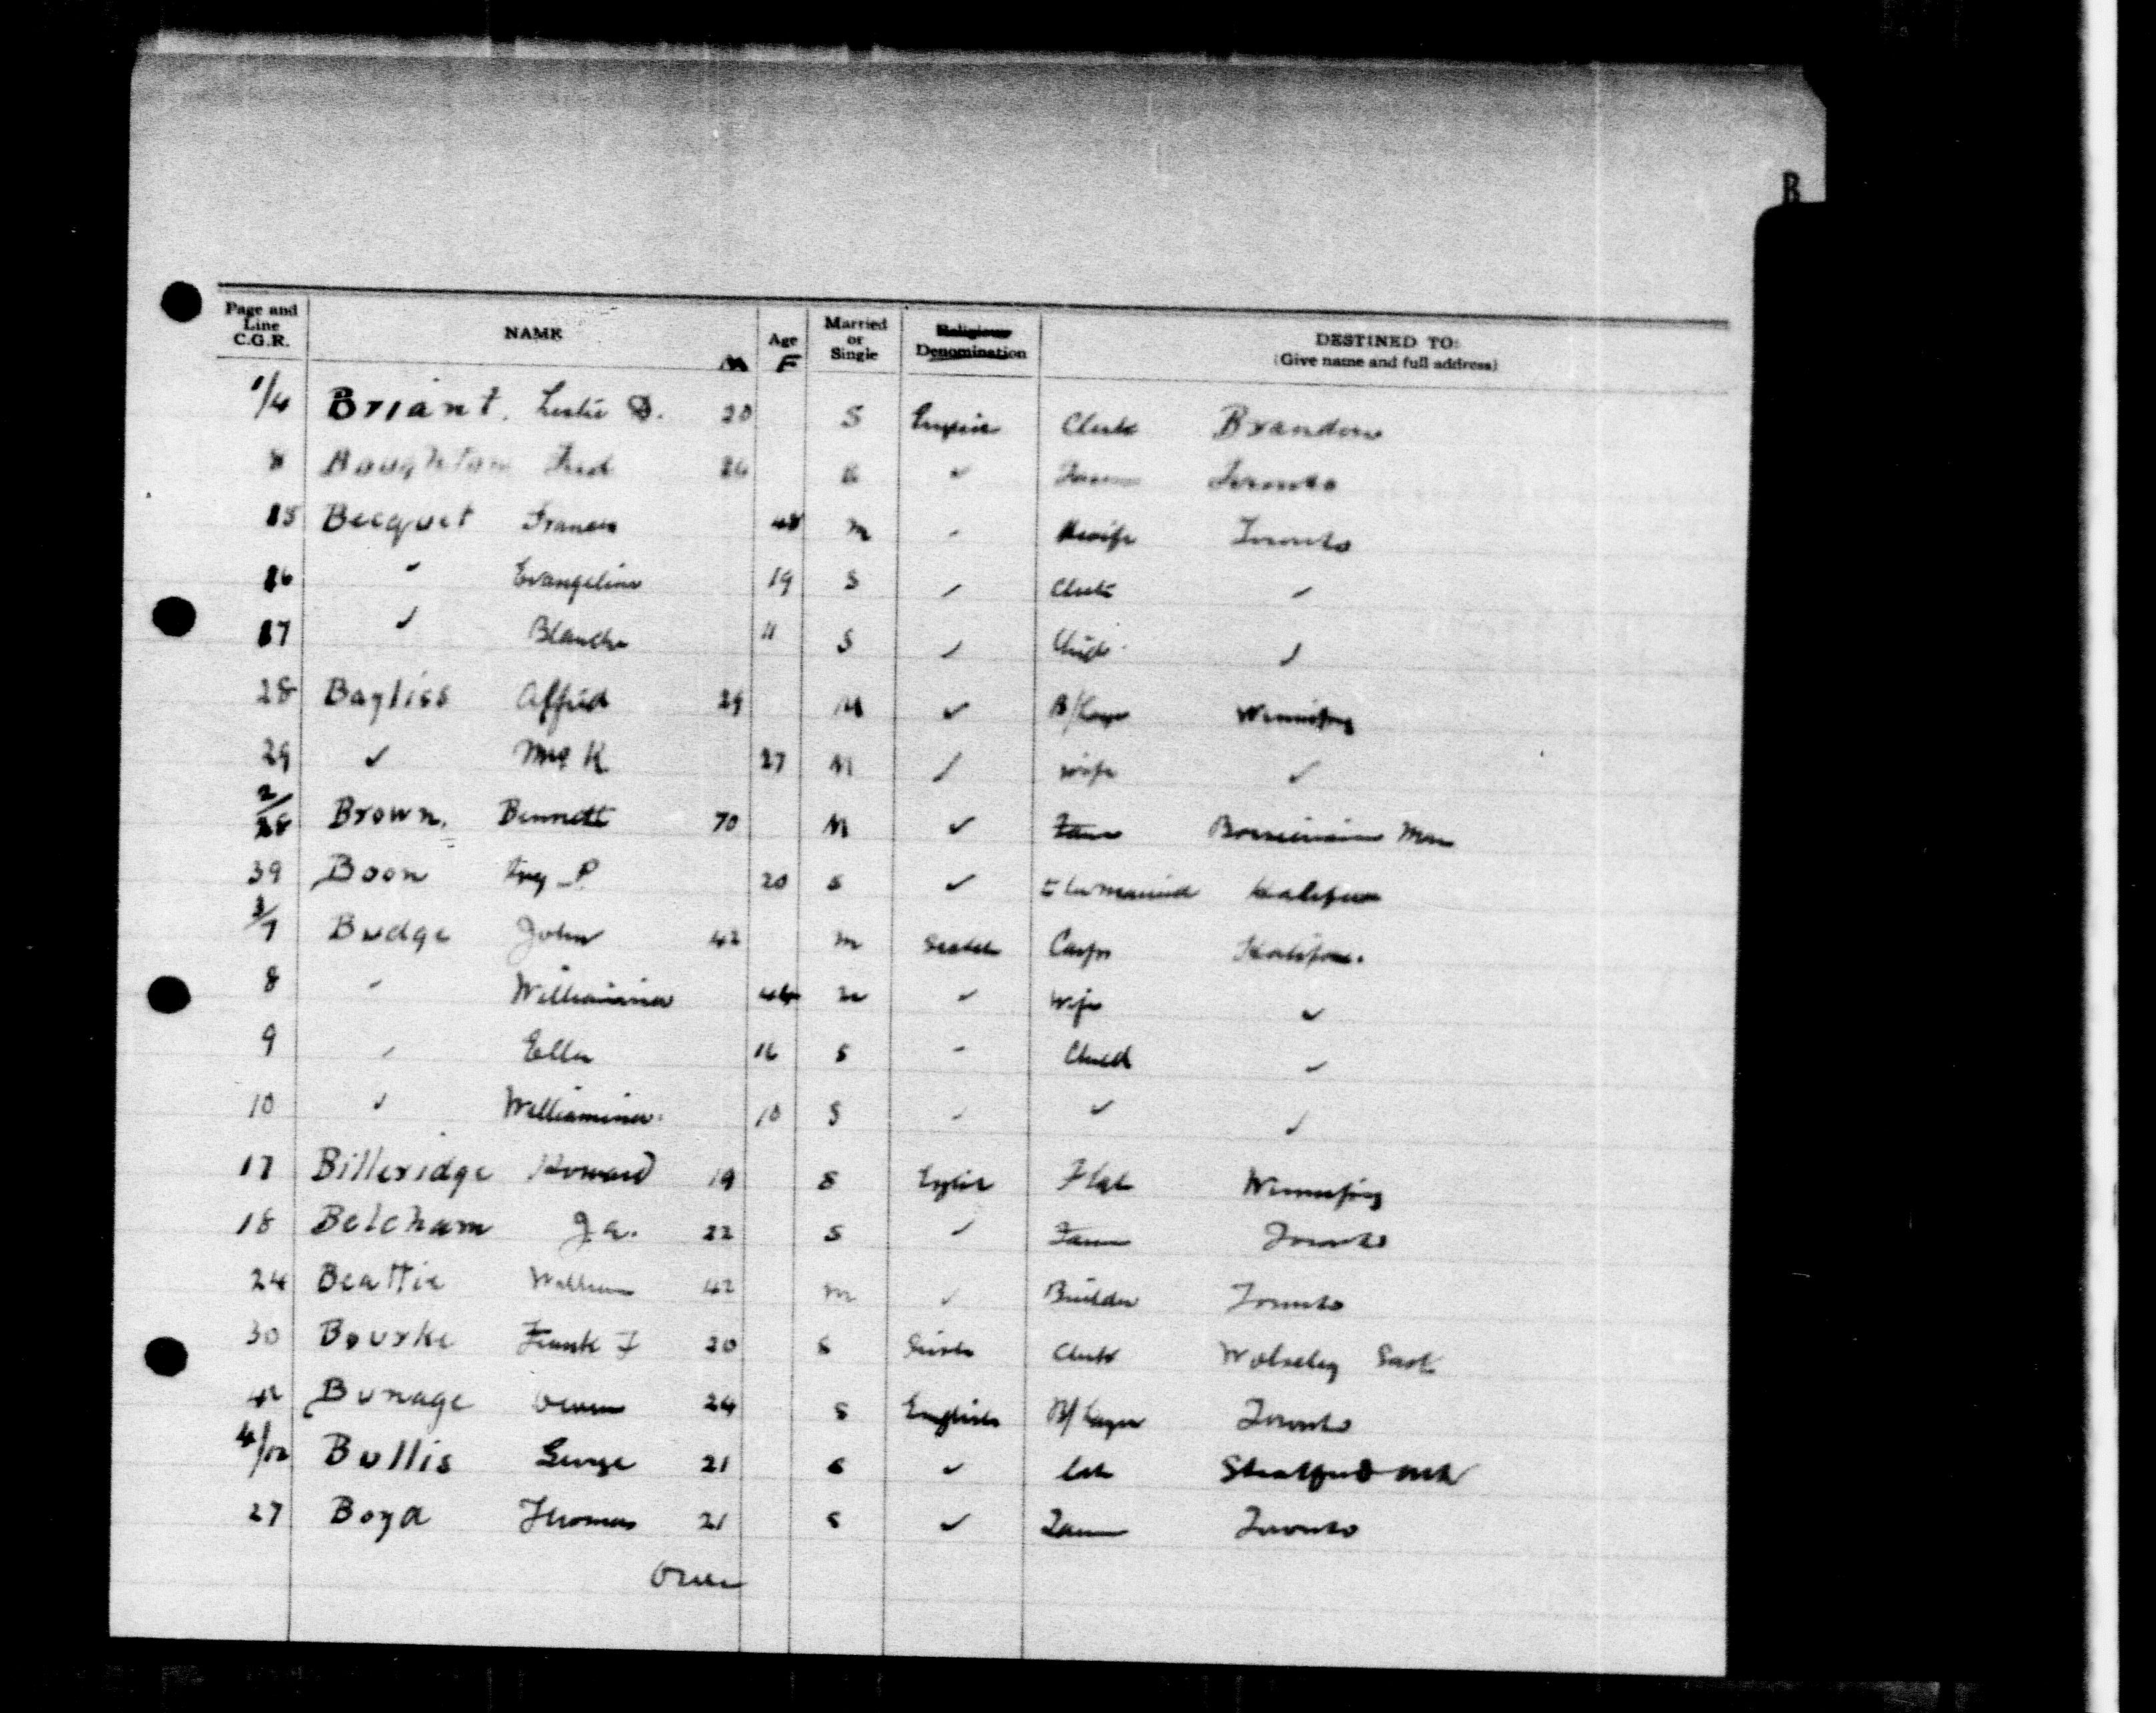 B
Page and Line C.G.R. NAME M Age F Married or Single Religious Denomination DESTINED TO: (Give name and full address)
1/4 Briant. Leslie D. 20 S English Clerk Brandon
8 Boughton Fred 26 S ✓ Toronto
15 Becquet Frances 48 m " Hwife Toronto
16 " Evangeline 19 S " Clerk "
17 " Blanche 11 S " Child "
28 Bayliss Alfred 29 M ✓ B/Layer Winnipeg
29 ✓ Mrs K. 27 M ✓ wife ✓
2/28 Brown. Bennett 70 M ✓ Farmer Boissevain Man
39 Boon P 20 S ✓ Halifax
3/7 Budge John 42 m Scotch Carp Halifax.
8 " Williamina 44 m ✓ Wife ✓
9 " Ella 16 S " Child "
10 ✓ Williamina. 10 S " ✓ ✓
17 Billeridge Howard 19 S English Winnipeg
18 Belcham J a. 22 S ✓ Farm Toronto
24 Beattie William 42 m ✓ Builder Toronto
30 Bourke Frank F 20 S Irish Clerk Wolseley Sask
42 Bunage Owen 24 S English B/Layer Toronto
4/12 Bullis George 21 S ✓ Stratford Ont
27 Boyd Thomas 21 S ✓ Farm Toronto
Over